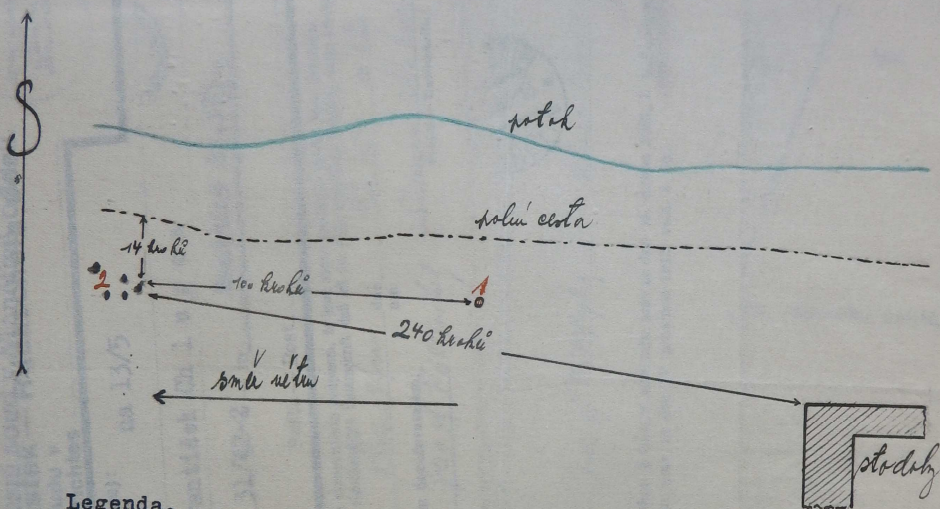 S
potok
polní cesta
14 kroků
2
100 kroků
1
240 kroků
směr větru
stodoly
Legenda.